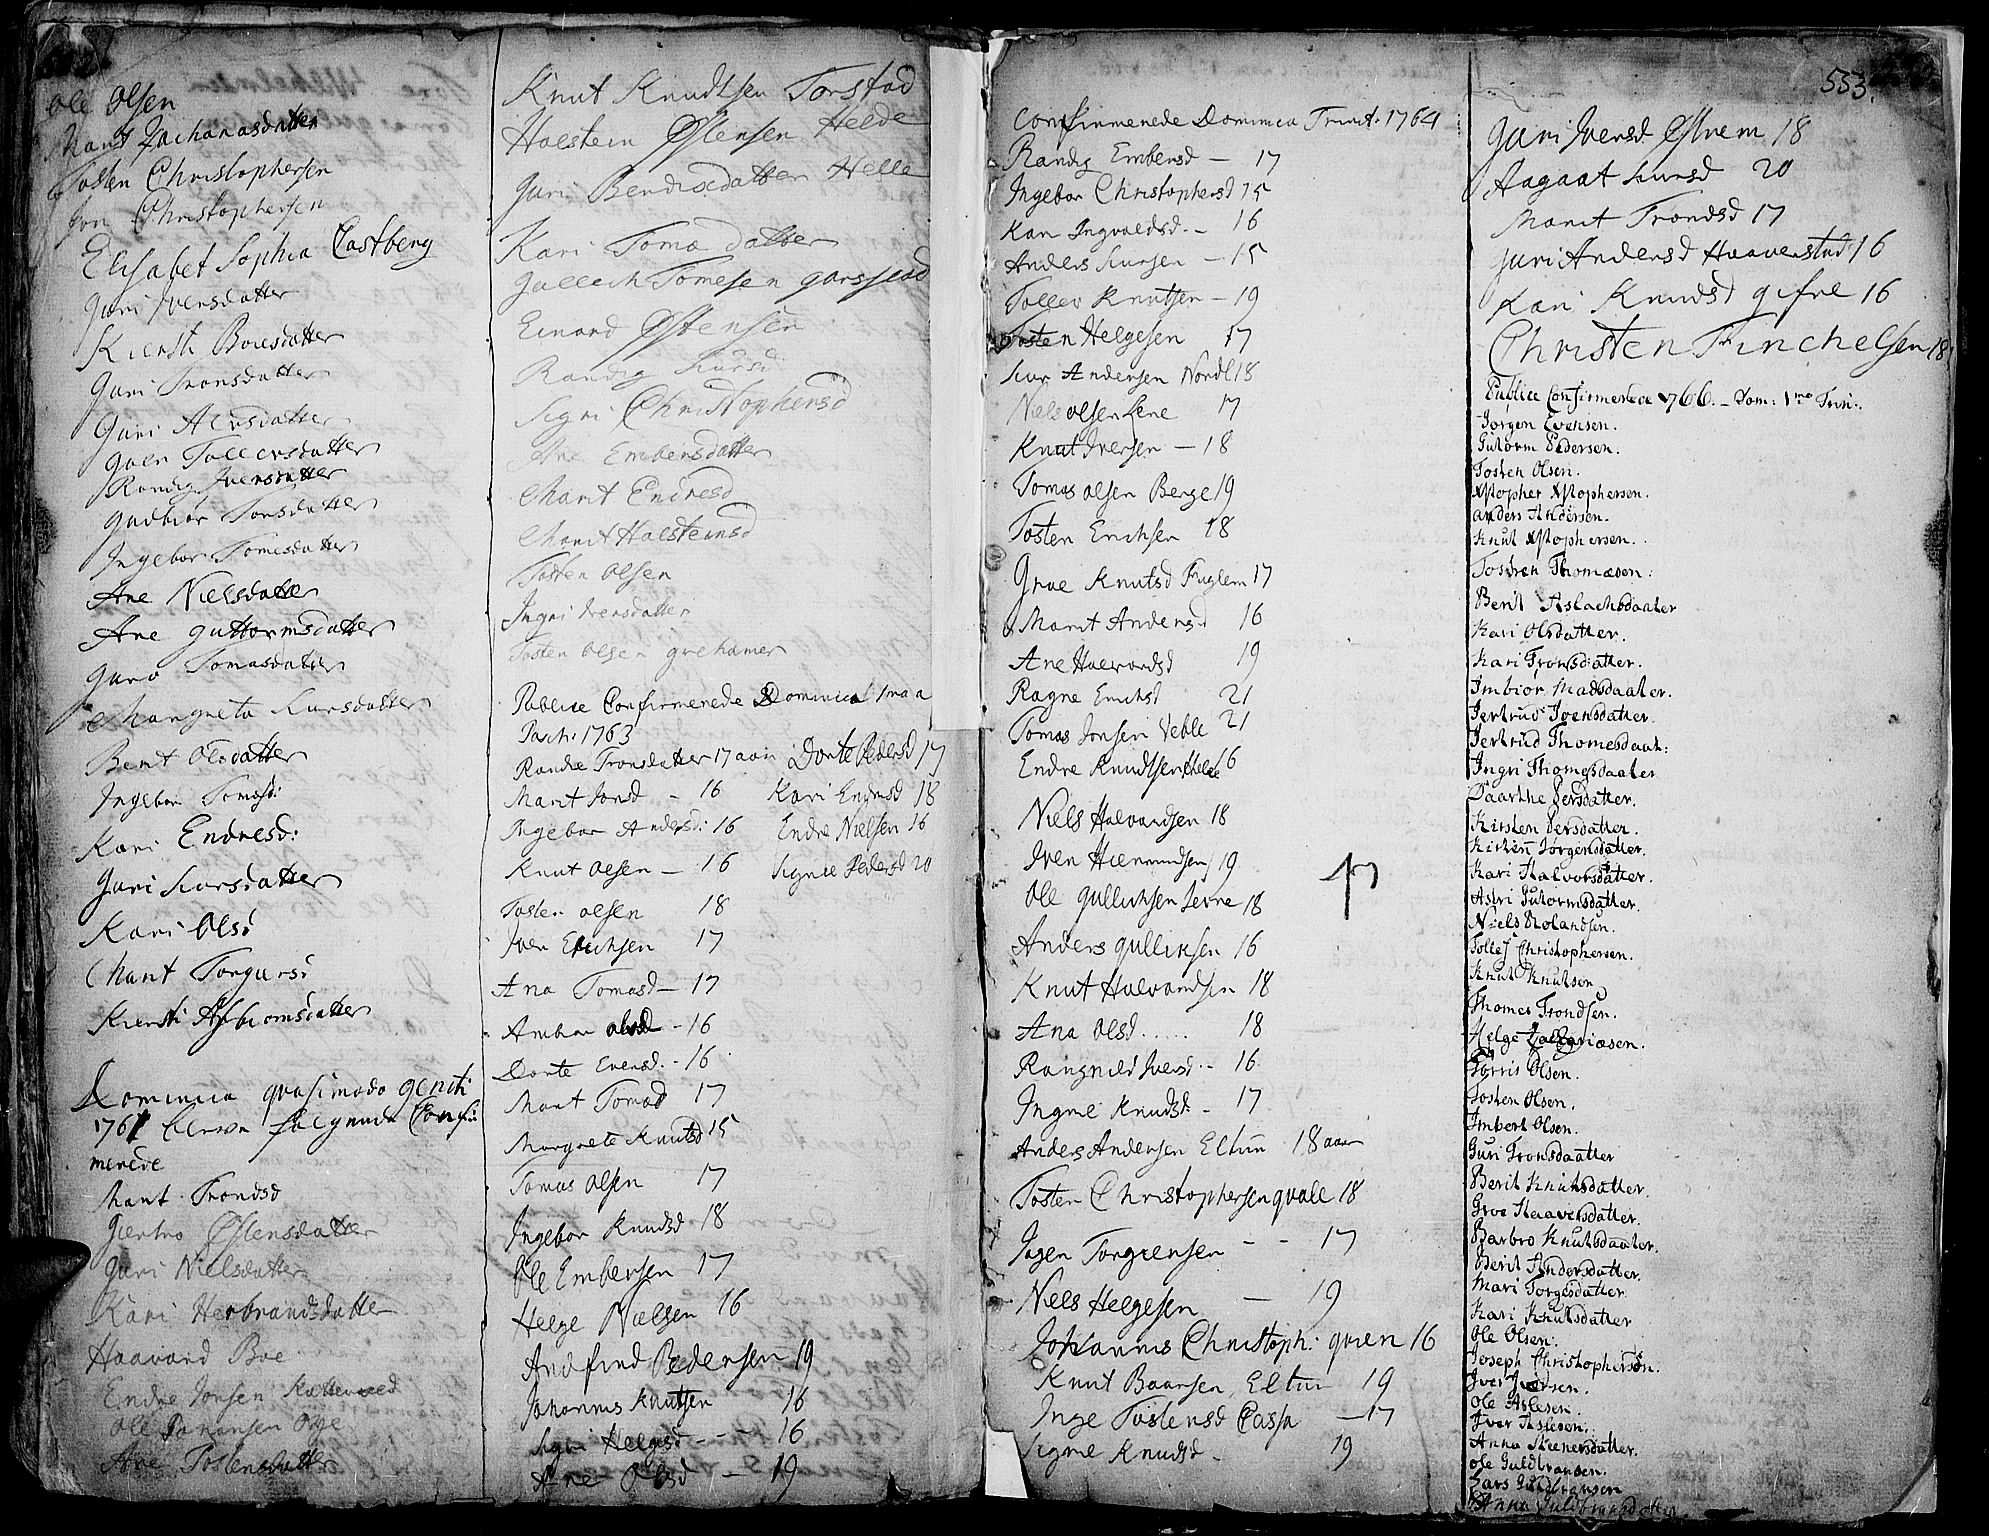 Ole Olsen
Marit Zachariasdatter
Tosten Christophersen
Jon Christophersen
Elisabet Sophia Castberg
Guri Iversdatter
Kiersti Boiesdatter
Guri Tronsdatter
Guri Alersdatter
Guri Tollersdatter
Randig Iversdatter
Gudbiør Tonsdatter
Ingebor Tomesdatter
Ane Nielsdatter
Ane Guttormsdatter
Guro Tomasdatter
Mangreta Lursdatter
Berit Olsdatter
Ingebor Tomasd:
Kari Endresd:
Guri Lursdatter
Kari Olsd
Marit Torgersd
Kiersti Asbiornsdatter
Dominica quasimodo geniti
1761 bleven følgende Confir
merede
Marit Trondsd
Giertro Østensdatter
Guri Nielsdatter
Kari Herbrandsdatter
Haavard Boe
Endre Jonsen Kattevold
Ole Johansen Øye
Ane Tostensdatter
Knut Knudtsen Torstad
Halstein Østensen Helde
Guri Bendixdatter Helle
Kari Toma datter
Gullech Tomesen Garsjord
Einard Østensen
Randig Lursd
Sigri Christophersd
Ane Embersdatter
Marit Endresd
Marit Halsteinsd
Tosten Olsen
Ingri Iversdatter
Tosten Olsen Grehamer
Publice Confirmerede Dominica 1ma a
Pasch: 1763
Randie Tronsdatter 17 aar Dorte Pedersd 17
Marit Jonsd - 16 Kari Endresd 18
Ingebor Andersd: 16 Endre Nielsen 16
Knut Olsen - 16 Signe Pedersd 20
Tosten Olsen 18
Iver Erichsen 17
Ana Tomasd - 17
Ambior Olsd - 16
Dorte Eversd. - 16
Marit Tomasd 17
Margrete Knutsd 15
Tomas Olsen 17
Ingebor Knudsd 18
Ole Embersen 17
Helge Nielsen 16
Andfind Pedersen 19
Johannis Knutsen 16
Sigri Helgesd - - - 16
Ane Olsd - 19
Confirmerede Dominica Trinit: 1764
Randig Embersd - 17
Ingebor Christophersd 15
Kari Ingvaldsd. - 16
Anders Lursen - 15
Tollev Knutsen - 19
Tosten Helgesen 17
Lur Andersen Nordl 18
Niels Olsen Lene 17
Knut Iversen - 18
Tomas Olsen Berge 19
Tosten Erichsen 18
Groe Knutsd Fuglem 17
Marit Andersd 16
Ane Halvordsd 19
Ragne Erichsd 21
Tomas Jonsen Veble 21
Endre Knudtsen Helle 16
Niels Halvordsen 18
Iven Hiermundsen 19
Ole Gulliksen Jevne 18
Anders Gulliksen 16
Knut Halvordsen 18
Ana Olsd..... 18
Rangnild Iversd - - 16
Ingrie Knudsd - 17
Anders Andersen Eltun 18 aar
Tosten Christophersen Quale 18
Ingen Torgiersen - - 17
Niels Helgesen - 19
Johannis Christoph: Qvien 16
Knut Baarsen Eltun 19
Inge Tostensd Cassa - 17
Signe Knudsd - 19
553.
Guri Iversd Østrem 18
Aagaat Lursd 20
Marit Trondsd 17
Guri Andersd Haaverstad 16
Kari Knudsd Gifre 16
Christen Finchelsen 18
Publice Confirmerede 1766. - Dom: 1ma Trin:
Jørgen Evensen.
Gutorm Pedersen.
Tosten Olsen.
Xstopher Xstophersen.
Anders Andersen.
Knut Xstophersen.
Tosten Thomæsen:
Berit Aslachsdaater
Kari Olsdatter.
Kari Tronsdatter.
Imbiør Madsdaater.
Jertrud Ivensdatter.
Jertrud Thomesdaat:
Ingri Thomesdaater
Daarthe Persdatter.
Kirsten Persdatter.
Kirsten Jörgensdatter.
Kari Halvorsdatter.
Astri Gutormsdatter.
Niels Rolandsen.
Tollef Christophersen.
Knut Knutsen
Thomes Trondsen.
Helge Zachariæsen.
Torris Olsen.
Tosten Olsen.
Imbert Olsen.
Guri Tronsdaatter
Berit Knutsdatter.
Groe Haaversdatter.
Barbro Knutsdaater.
Berit Andersdatter.
Mari Torgesdatter
Kari Knutsdatter
Ole Olsen:
Joseph Christophersen.
Iver Iversen.
Ole Aslesen.
Iver Aslesen.
Anna Steenersdatter.
Ole Guldbransen.
Lars Guldbransen
Anna Guldbransdatter